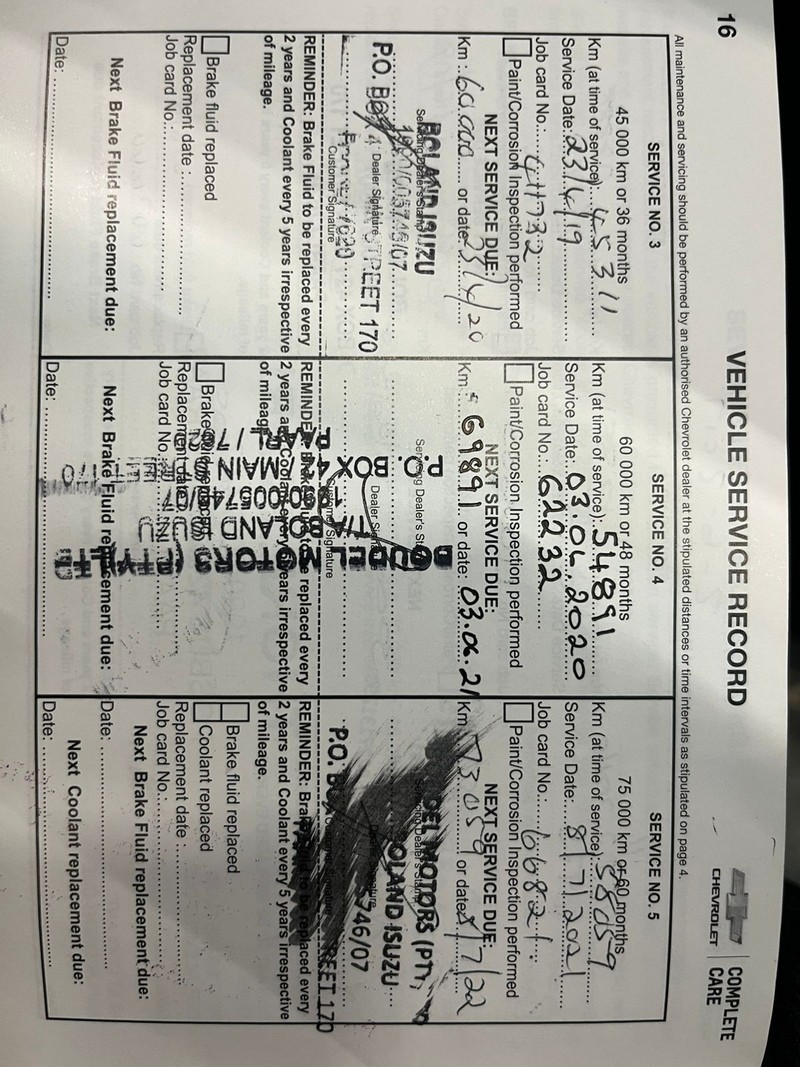 16
VEHICLE SERVICE RECORD
CHEVROLET
COMPLETE
CARE
All maintenance and servicing should be performed by an authorised Chevrolet dealer at the stipulated distances or time intervals as stipulated on page 4.
SERVICE NO. 3
45 000 km or 36 months
Km (at time of service): 45311
Service Date: 23/4/19
Job card No.: 
Paint/Corrosion Inspection performed
NEXT SERVICE DUE:
Km: 60.000 or date: 23/4/20
Servicing Dealer's Stamp
BOLAND ISUZU
Dealer Signature
P.O. STREET 170
Customer Signature
REMINDER: Brake Fluid to be replaced every
2 years and Coolant every 5 years irrespective
of mileage.
Brake fluid replaced
Replacement date :
Job card No.:
Next Brake Fluid replacement due:
Date:
SERVICE NO. 4
60 000 km or 48 months
Km (at time of service): 54891
Service Date: 03.06.2020
Job card No.: 62232
Paint/Corrosion Inspection performed
NEXT SERVICE DUE:
Km: 69891 or date: 03.06.21
Servicing Dealer's
Dealer
Customer Signature
BOUDEL MOTORS (PTY) LTD
T/A BOLAND ISUZU
P.O. BOX 4 MAIN
PAARL / 7620
REMINDER: replaced every
2 years and Coolant every 5 years irrespective
of mileage.
Brake
Replacement
Job card No.
Next Brake Fluid replacement due:
Date:
SERVICE NO. 5
75 000 km or 60 months
Km (at time of service): 58059
Service Date: 8/7/2021
Job card No.: 66821
Paint/Corrosion Inspection performed
NEXT SERVICE DUE:
Km 73059 or date: 8/7/22
DEL MOTORS (PTY)
OLAND ISUZU
746/07
P.O. REET 170
REMINDER: Brake to be replaced every
2 years and Coolant every 5 years irrespective
of mileage.
Brake fluid replaced
Coolant replaced
Replacement date :
Job card No.:
Next Brake Fluid replacement due:
Date:
Next Coolant replacement due:
Date: